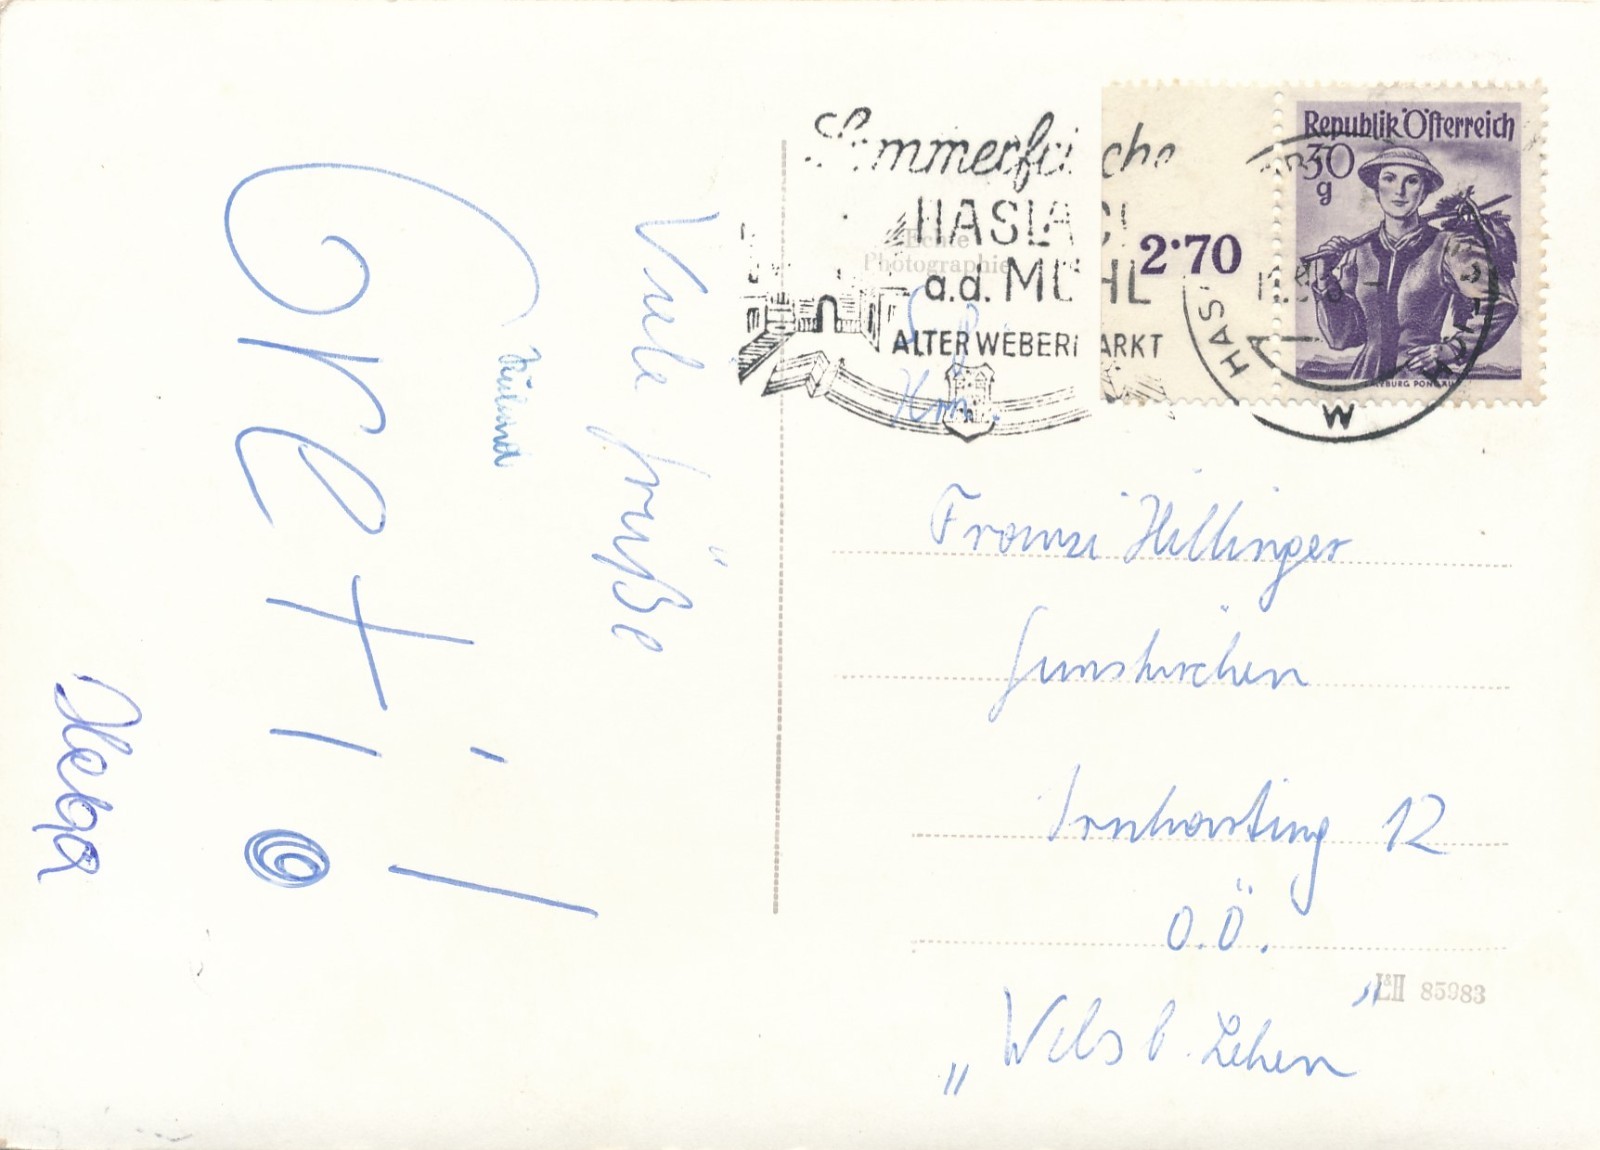 Viele Grüße
Gretil
Helga
Sommerfrische
HASLACH
a.d. MÜHL
ALTER WEBERMARKT
Echte
Photographie
2·70
Republik Österreich
30
g
SALZBURG PONGAU
W
Franzi Hillinger
Gunskirchen
Irnharting 12
O.Ö.
„Wels b. Lehen“
L&H 85983